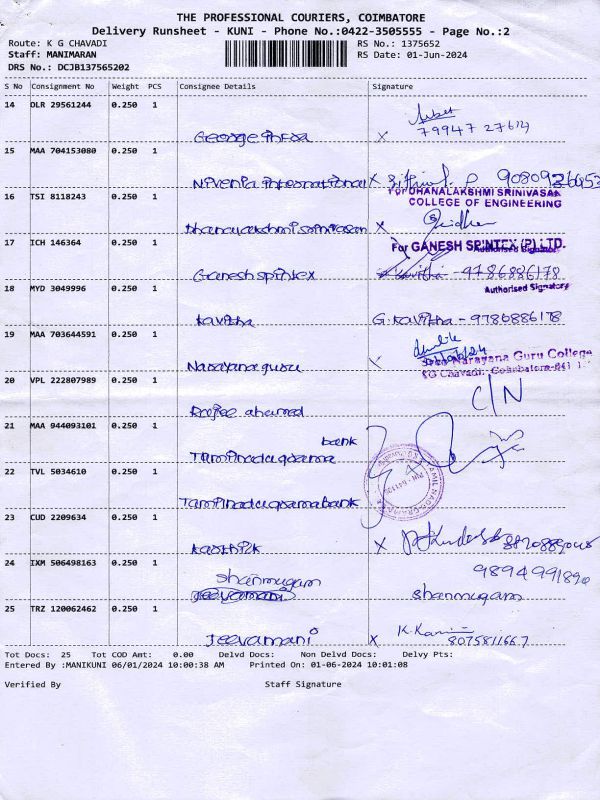 THE PROFESSIONAL COURIERS, COIMBATORE
Delivery Runsheet - KUNI - Phone No.:0422-3505555 - Page No.:2
Route: K G CHAVADI RS No.: 1375652
Staff: MANIMARAN RS Date: 01-Jun-2024
DRS No.: DCJB137565202
S No Consignment No Weight PCS Consignee Details Signature
14 DLR 29561244 0.250 1
George
X 79947 27673
15 MAA 704153080 0.250 1
Nivenia international X 9080926453
16 TSI 8118243 0.250 1
For DHANALAKSHMI SRINIVASAN
COLLEGE OF ENGINEERING
Dhanalakshmi srinivasan X
17 ICH 146364 0.250 1
For GANESH SPINTEX (P) LTD.
Authorised Signatory
Ganesh spintex Kavitha - 9786886178
18 MYD 3049996 0.250 1
Authorised Signatory
Kavitha G. Kavitha - 9786886178
19 MAA 703644591 0.250 1
Narayana guru
Sree Narayana Guru College
KG Chavadi, Coimbatore-641 1
20 VPL 222807989 0.250 1
C/N
Rajee ahamed
21 MAA 944093101 0.250 1
bank
Tamilnadu grama
22 TVL 5034610 0.250 1
Tamilnadu grama bank
23 CUD 2209634 0.250 1
Karthik X
24 IXM 506498163 0.250 1
Shanmugam 9894991890
Jeevamani Shanmugam
25 TRZ 120062462 0.250 1
Jeevamani X K. Kani 8075811667
Tot Docs: 25 Tot COD Amt: 0.00 Delvd Docs: Non Delvd Docs: Delvy Pts:
Entered By :MANIKUNI 06/01/2024 10:00:38 AM Printed On: 01-06-2024 10:01:08
Verified By Staff Signature